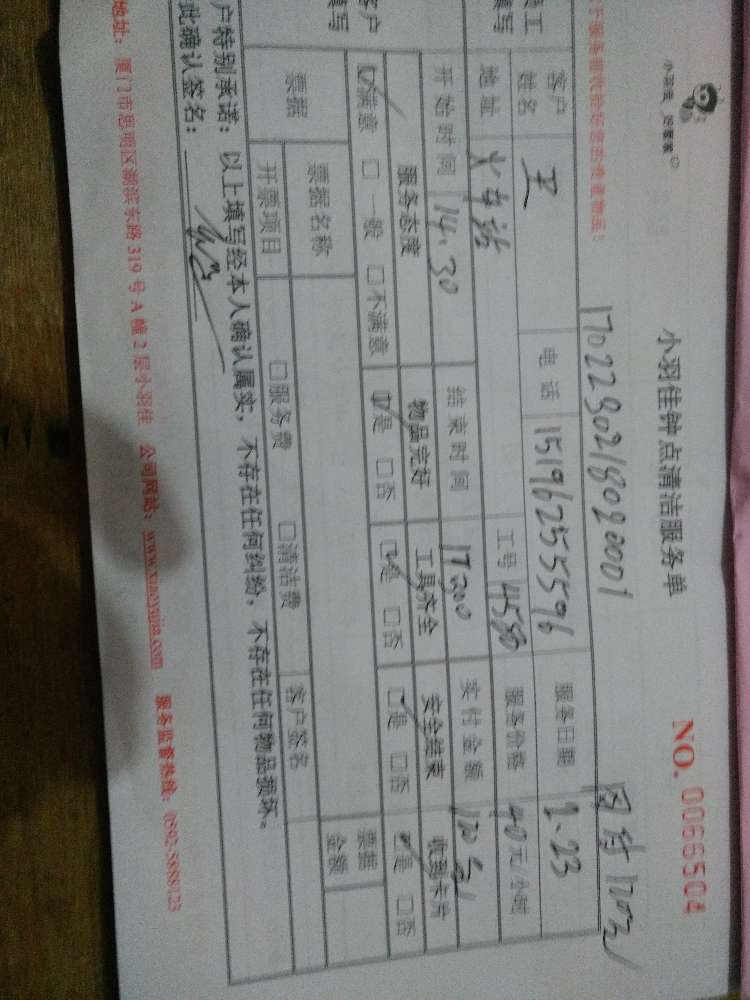 小羽佳钟点清洁服务单
NO. 0066504
17022302180920001 网付120元
客户姓名 王 电话 15196255596 服务日期 2.23
地址 火车站 工号 4580 服务价格 40元/小时
开始时间 14.30 结束时间 17:00 实付金额
服务态度 物品完好 工具齐全 安全结束 收到卡片
☑满意 □一般 □不满意 ☑是 □否 ☑是 □否 ☑是 □否 ☑是 □否
票据 票据名称 票据金额
开票项目 □服务费 □清洁费 客户签名
户特别承诺：以上填写经本人确认属实，不存在任何纠纷，不存在任何物品损坏。
此确认签名：
地址：厦门市思明区湖滨东路319号A幢2层小羽佳 公司网站：www.xiaoyujia.com 服务监督热线：0592-5888123